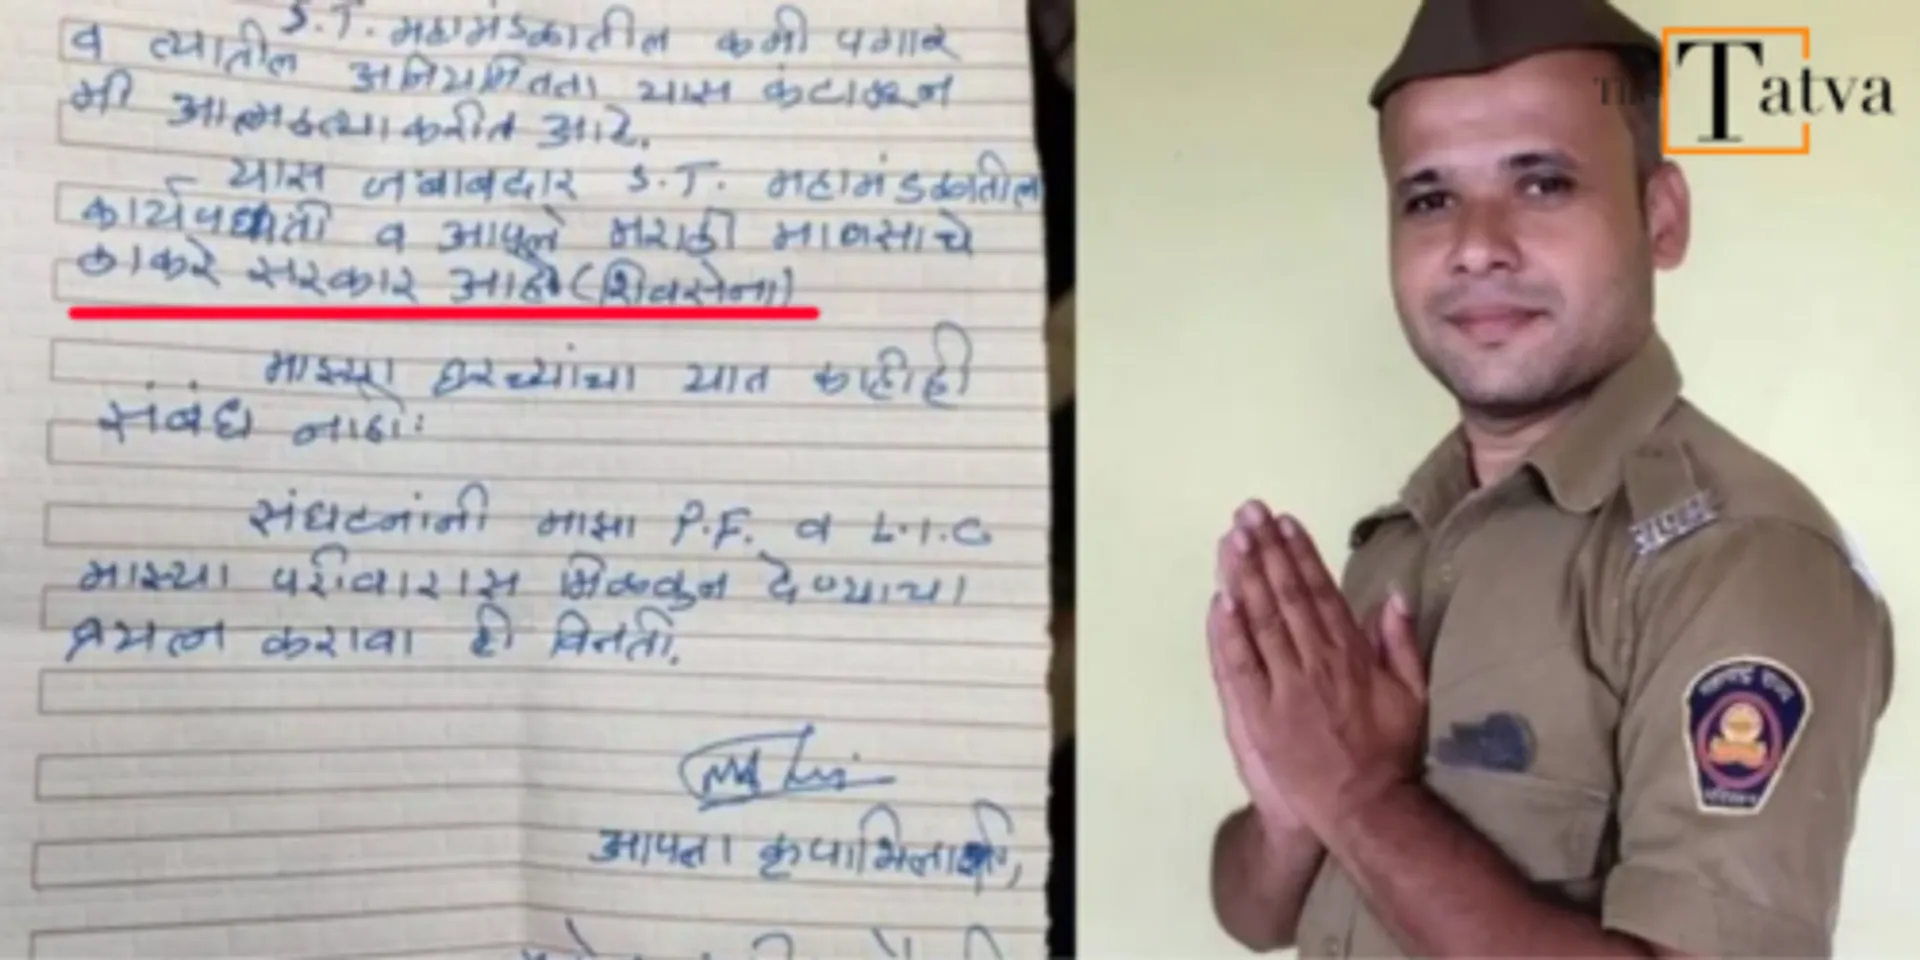 S.T. महामंडळातील कमी पगार
व त्यातील अनियमितता यास कंटाळून
मी आत्महत्या करीत आहे.
यास जबाबदार S.T. महामंडळातील
कार्यपध्दती व आपले मराठी माणसाचे
ठाकरे सरकार आहे (शिवसेना)
माझ्या घरच्यांचा यात काहीही
संबंध नाही.
संघटनांनी माझा P.F. व L.I.C
माझ्या परीवारास मिळवून देण्याचा
प्रयत्न करावा ही विनंती.
आपला कृपाभिलाषी,
The Tatva
महाराष्ट्र राज्य
परिवहन